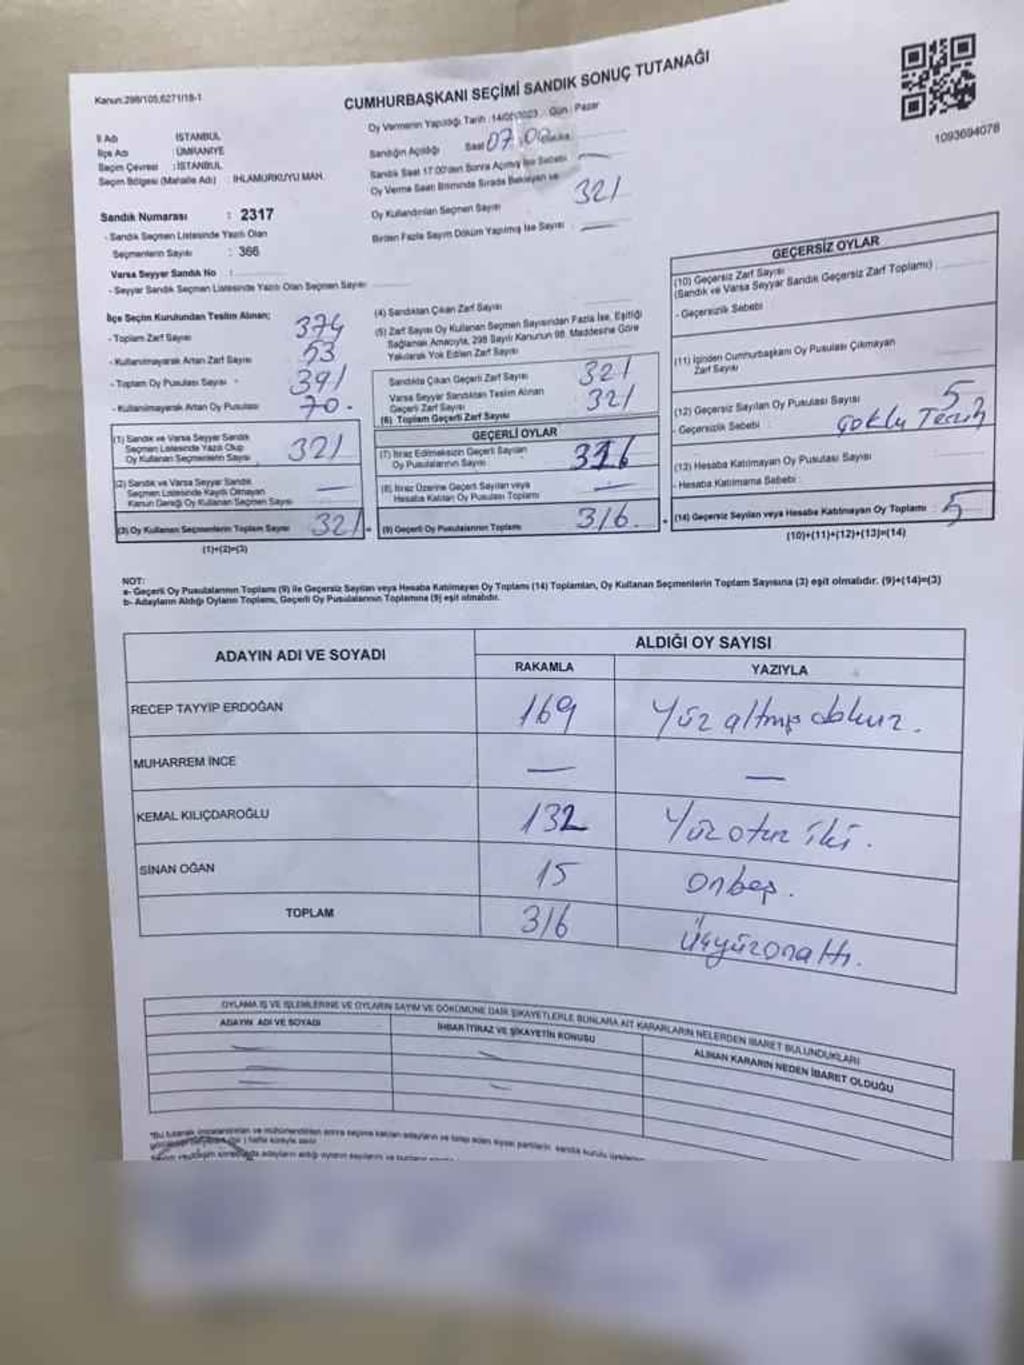 Kanun:298/105,6271/18-1
CUMHURBAŞKANI SEÇİMİ SANDIK SONUÇ TUTANAĞI
1093694078
İl Adı : İSTANBUL
İlçe Adı : ÜMRANİYE
Seçim Çevresi : İSTANBUL
Seçim Bölgesi (Mahalle Adı) : IHLAMURKUYU MAH.
Oy Vermenin Yapıldığı Tarih :14/05/2023 Gün : Pazar
Sandığın Açıldığı Saat 07.00
Sandık Saat 17:00'den Sonra Açılmış İse Sebebi —
Oy Verme Saati Bitiminde Sırada Bekleyen ve
Oy Kullandırılan Seçmen Sayısı 321
Birden Fazla Sayım Döküm Yapılmış İse Sayısı : —
Sandık Numarası : 2317
- Sandık Seçmen Listesinde Yazılı Olan
Seçmenlerin Sayısı : 366
Varsa Seyyar Sandık No :
- Seyyar Sandık Seçmen Listesinde Yazılı Olan Seçmen Sayısı
İlçe Seçim Kurulundan Teslim Alınan;
- Toplam Zarf Sayısı 374
- Kullanılmayarak Artan Zarf Sayısı 53
- Toplam Oy Pusulası Sayısı 391
- Kullanılmayarak Artan Oy Pusulası 70.
(1) Sandık ve Varsa Seyyar Sandık
Seçmen Listesinde Yazılı Olup
Oy Kullanan Seçmenlerin Sayısı 321
(2) Sandık ve Varsa Seyyar Sandık
Seçmen Listesinde Kayıtlı Olmayan
Kanun Gereği Oy Kullanan Seçmen Sayısı —
(3) Oy Kullanan Seçmenlerin Toplam Sayısı 321
(1)+(2)=(3)
(4) Sandıktan Çıkan Zarf Sayısı
(5) Zarf Sayısı Oy Kullanan Seçmen Sayısından Fazla İse, Eşitliği
Sağlamak Amacıyla, 298 Sayılı Kanunun 98. Maddesine Göre
Yakılarak Yok Edilen Zarf Sayısı
Sandıkta Çıkan Geçerli Zarf Sayısı 321
Varsa Seyyar Sandıktan Teslim Alınan
Geçerli Zarf Sayısı 321
(6) Toplam Geçerli Zarf Sayısı
GEÇERLİ OYLAR
(7) İtiraz Edilmeksizin Geçerli Sayılan
Oy Pusulalarının Sayısı 316
(8) İtiraz Üzerine Geçerli Sayılan veya
Hesaba Katılan Oy Pusulası Toplamı —
(9) Geçerli Oy Pusulalarının Toplamı 316.
GEÇERSİZ OYLAR
(10) Geçersiz Zarf Sayısı
(Sandık ve Varsa Seyyar Sandık Geçersiz Zarf Toplamı) :
- Geçersizlik Sebebi
(11) İçinden Cumhurbaşkanı Oy Pusulası Çıkmayan
Zarf Sayısı
(12) Geçersiz Sayılan Oy Pusulası Sayısı 5
- Geçersizlik Sebebi : Çoklu Tercih
(13) Hesaba Katılmayan Oy Pusulası Sayısı
- Hesaba Katılmama Sebebi :
(14) Geçersiz Sayılan veya Hesaba Katılmayan Oy Toplamı : 5
(10)+(11)+(12)+(13)=(14)
NOT:
a- Geçerli Oy Pusulalarının Toplamı (9) ile Geçersiz Sayılan veya Hesaba Katılmayan Oy Toplamı (14) Toplamları, Oy Kullanan Seçmenlerin Toplam Sayısına (3) eşit olmalıdır. (9)+(14)=(3)
b- Adayların Aldığı Oyların Toplamı, Geçerli Oy Pusulalarının Toplamına (9) eşit olmalıdır.
ADAYIN ADI VE SOYADI
ALDIĞI OY SAYISI
RAKAMLA YAZIYLA
RECEP TAYYİP ERDOĞAN 169 Yüz altmış dokuz.
MUHARREM İNCE — —
KEMAL KILIÇDAROĞLU 132 Yüz otuz iki.
SİNAN OĞAN 15 onbeş.
TOPLAM 316 üçyüzonaltı.
OYLAMA İŞ VE İŞLEMLERİNE VE OYLARIN SAYIM VE DÖKÜMÜNE DAİR ŞİKAYETLERLE BUNLARA AİT KARARLARIN NELERDEN İBARET BULUNDUKLARI
ADAYIN ADI VE SOYADI İHBAR İTİRAZ VE ŞİKAYETİN KONUSU ALINAN KARARIN NEDEN İBARET OLDUĞU